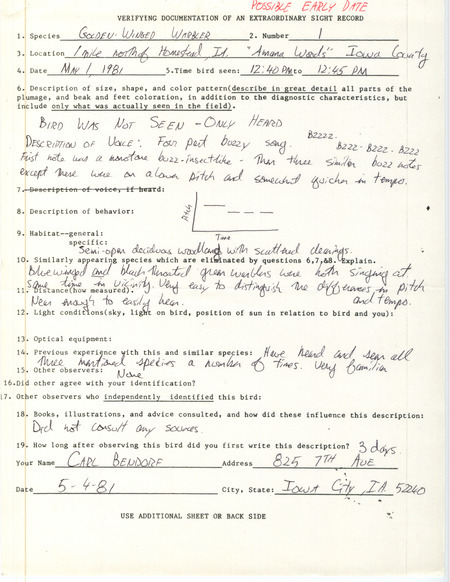 POSSIBLE EARLY DATE
VERIFYING DOCUMENTATION OF AN EXTRAORDINARY SIGHT RECORD
1. Species GOLDEN-WINGED WARBLER 2. Number 1
3. Location 1 mile north of Homestead, IA. "Amana Woods" Iowa County
4. Date MAY 1, 1981 5.Time bird seen: 12:40 PM to 12:45 PM
6. Description of size, shape, and color pattern(describe in great detail all parts of the
plumage, and beak and feet coloration, in addition to the diagnostic characteristics, but
include only what was actually seen in the field).
BIRD WAS NOT SEEN - ONLY HEARD
DESCRIPTION OF VOICE: Four part buzzy song. BZZZZ.
BZZZ-BZZZ-BZZZ
First note was a monotone buzz-insectlike - Then three similar buzz notes
except these were on a lower pitch and somewhat quicker in tempo.
7. Description of voice, if heard:
Pitch
8. Description of behavior:
Time
9. Habitat--general:
specific:
Semi-open deciduous woodland with scattered clearings.
10. Similarly appearing species which are eliminated by questions 6,7,&8. Explain.
Bluewinged and black-throated green warblers were both singing at
same time in vicinity. Very easy to distinguish the differences in pitch
and tempo.
11. Distance(how measured).
Near enough to easily hear.
12. Light conditions(sky, light on bird, position of sun in relation to bird and you):
13. Optical equipment:
14. Previous experience with this and similar species: Have heard and seen all
three mentioned species a number of times. Very familiar
15. Other observers: None
16.Did other agree with your identification?
17. Other observers who independently identified this bird:
18. Books, illustrations, and advice consulted, and how did these influence this description:
Did not consult any sources.
19. How long after observing this bird did you first write this description? 3 days.
Your Name CARL BENDORF Address 825 7TH AVE
Date 5-4-81 City, State: IOWA CITY, IA 52240
USE ADDITIONAL SHEET OR BACK SIDE